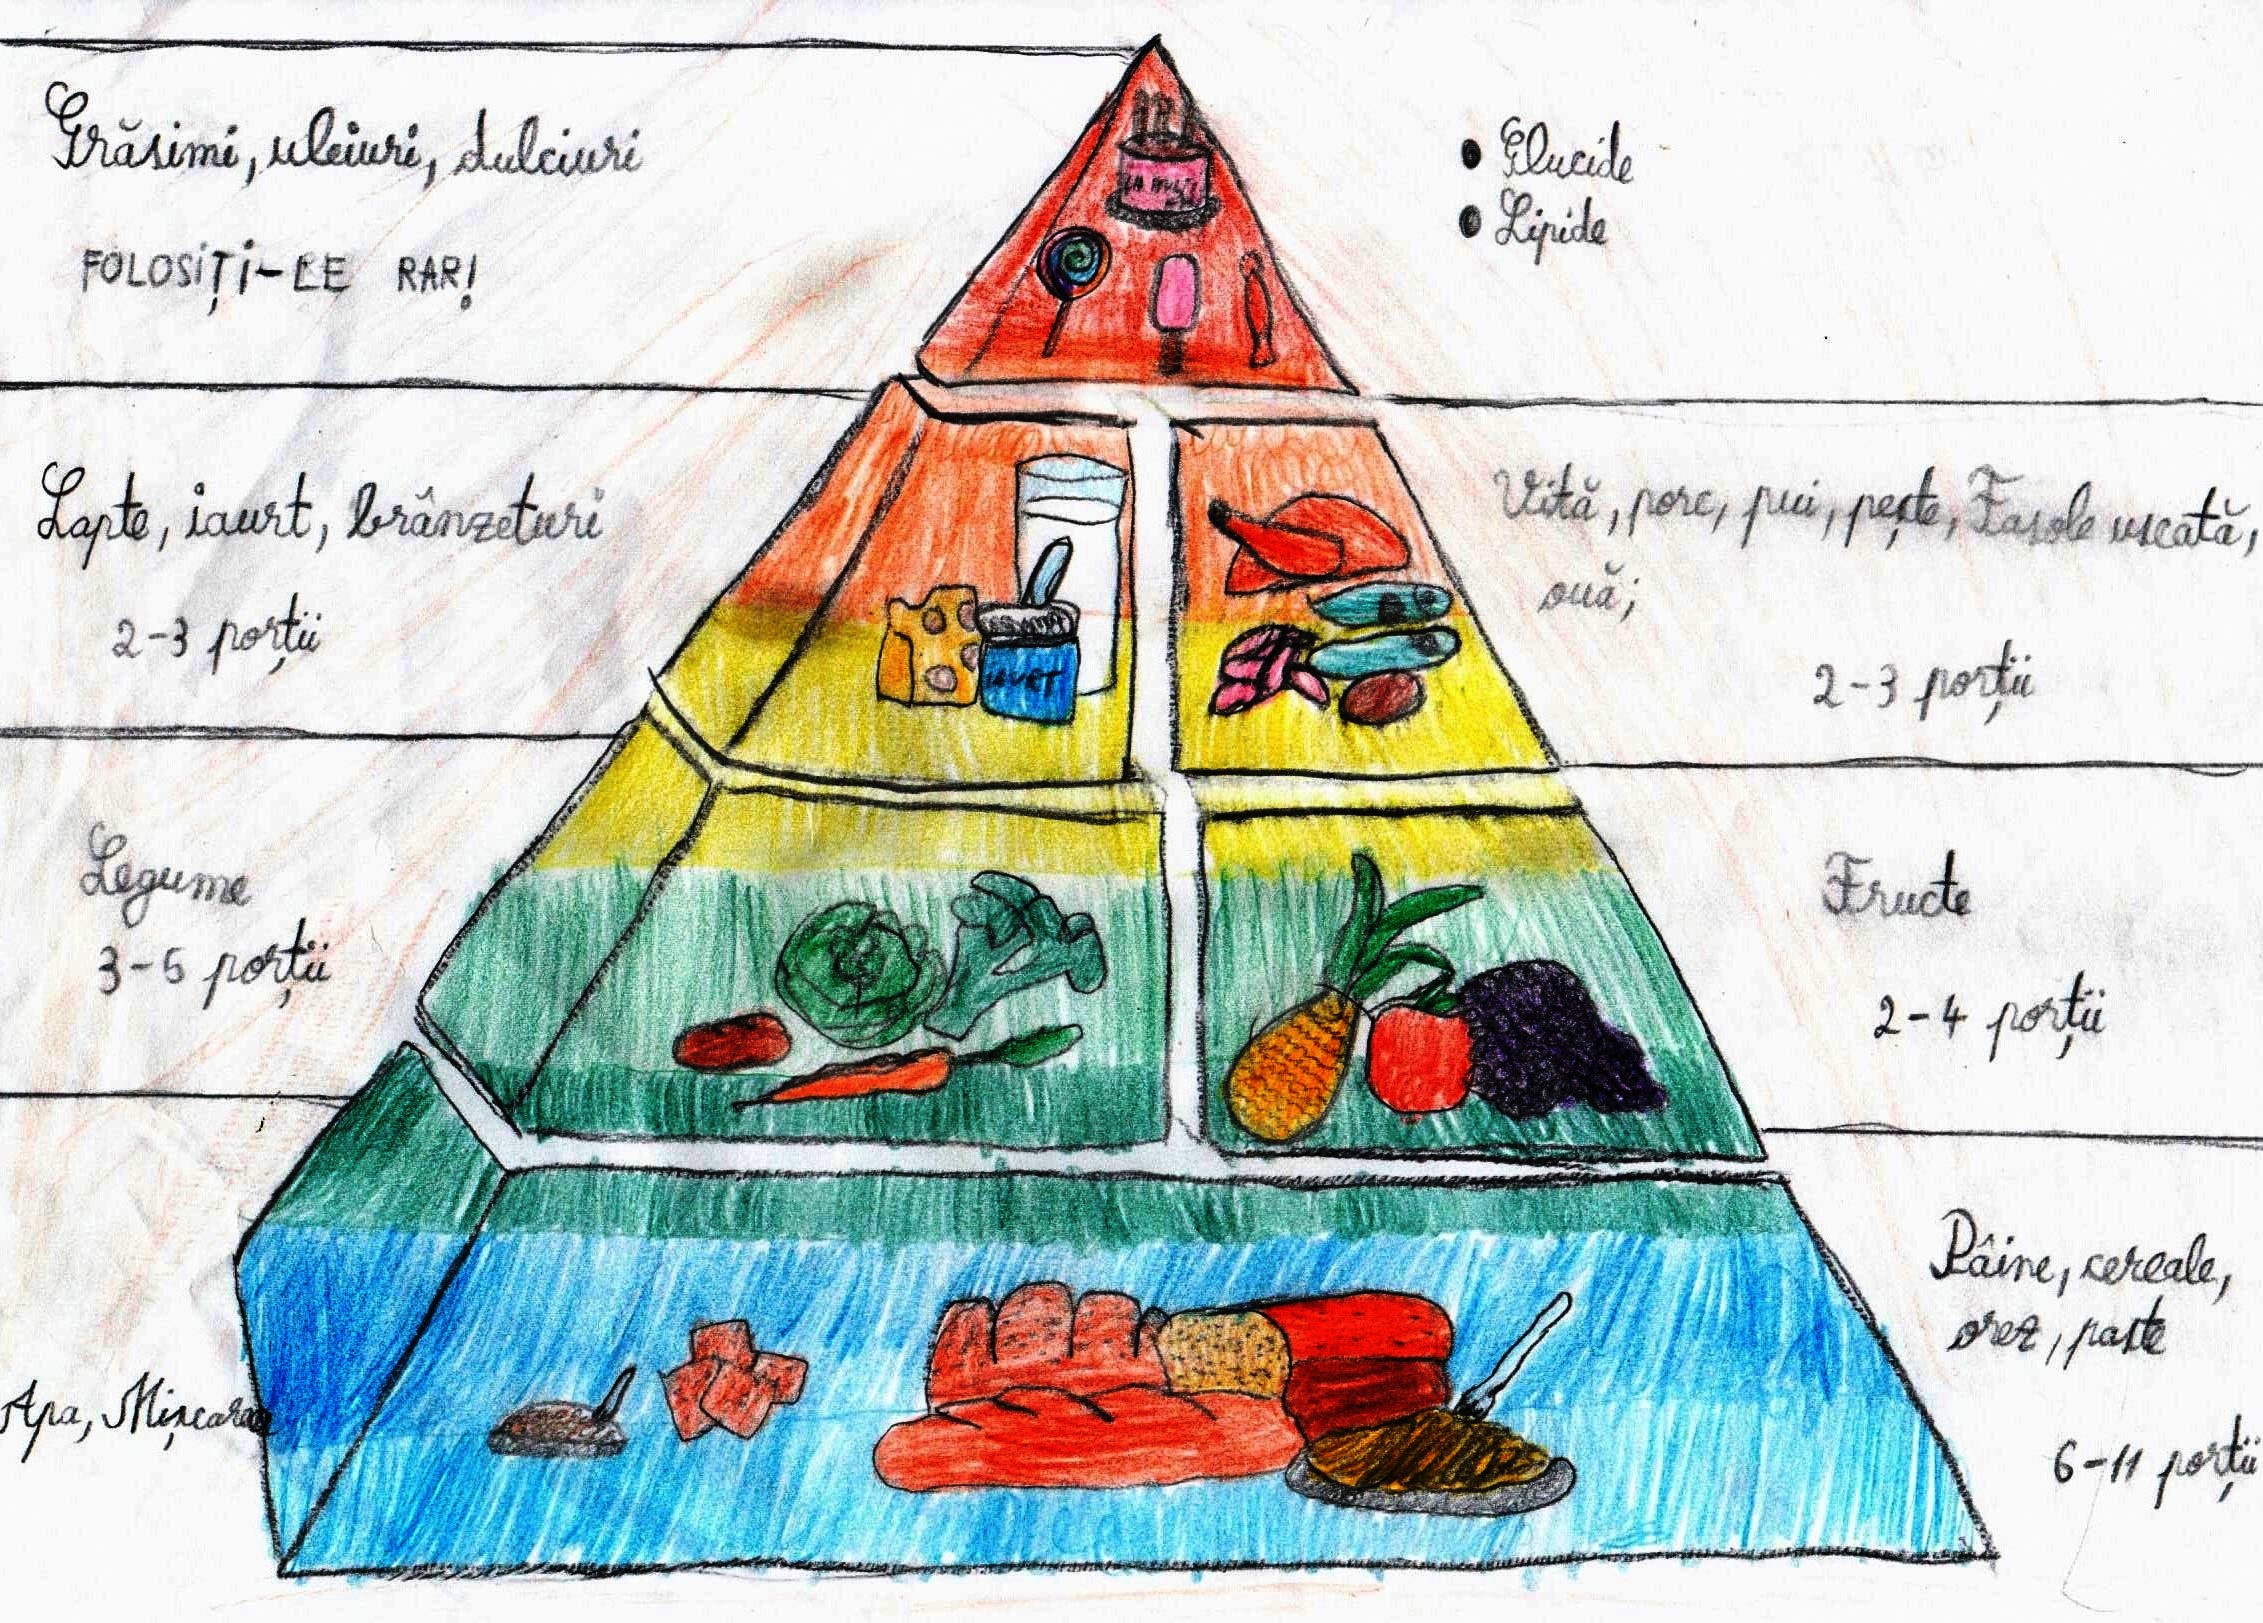 Grăsimi, uleiuri, dulciuri
FOLOSIȚI-LE RAR!
• Glucide
• Lipide
Lapte, iaurt, brânzeturi
2-3 porții
IAURT
Vită, porc, pui, pește, Fasole uscată,
ouă;
2-3 porții
Legume
3-5 porții
Fructe
2-4 porții
Apa, Mișcarea
Pâine, cereale,
orez, paste
6-11 porții